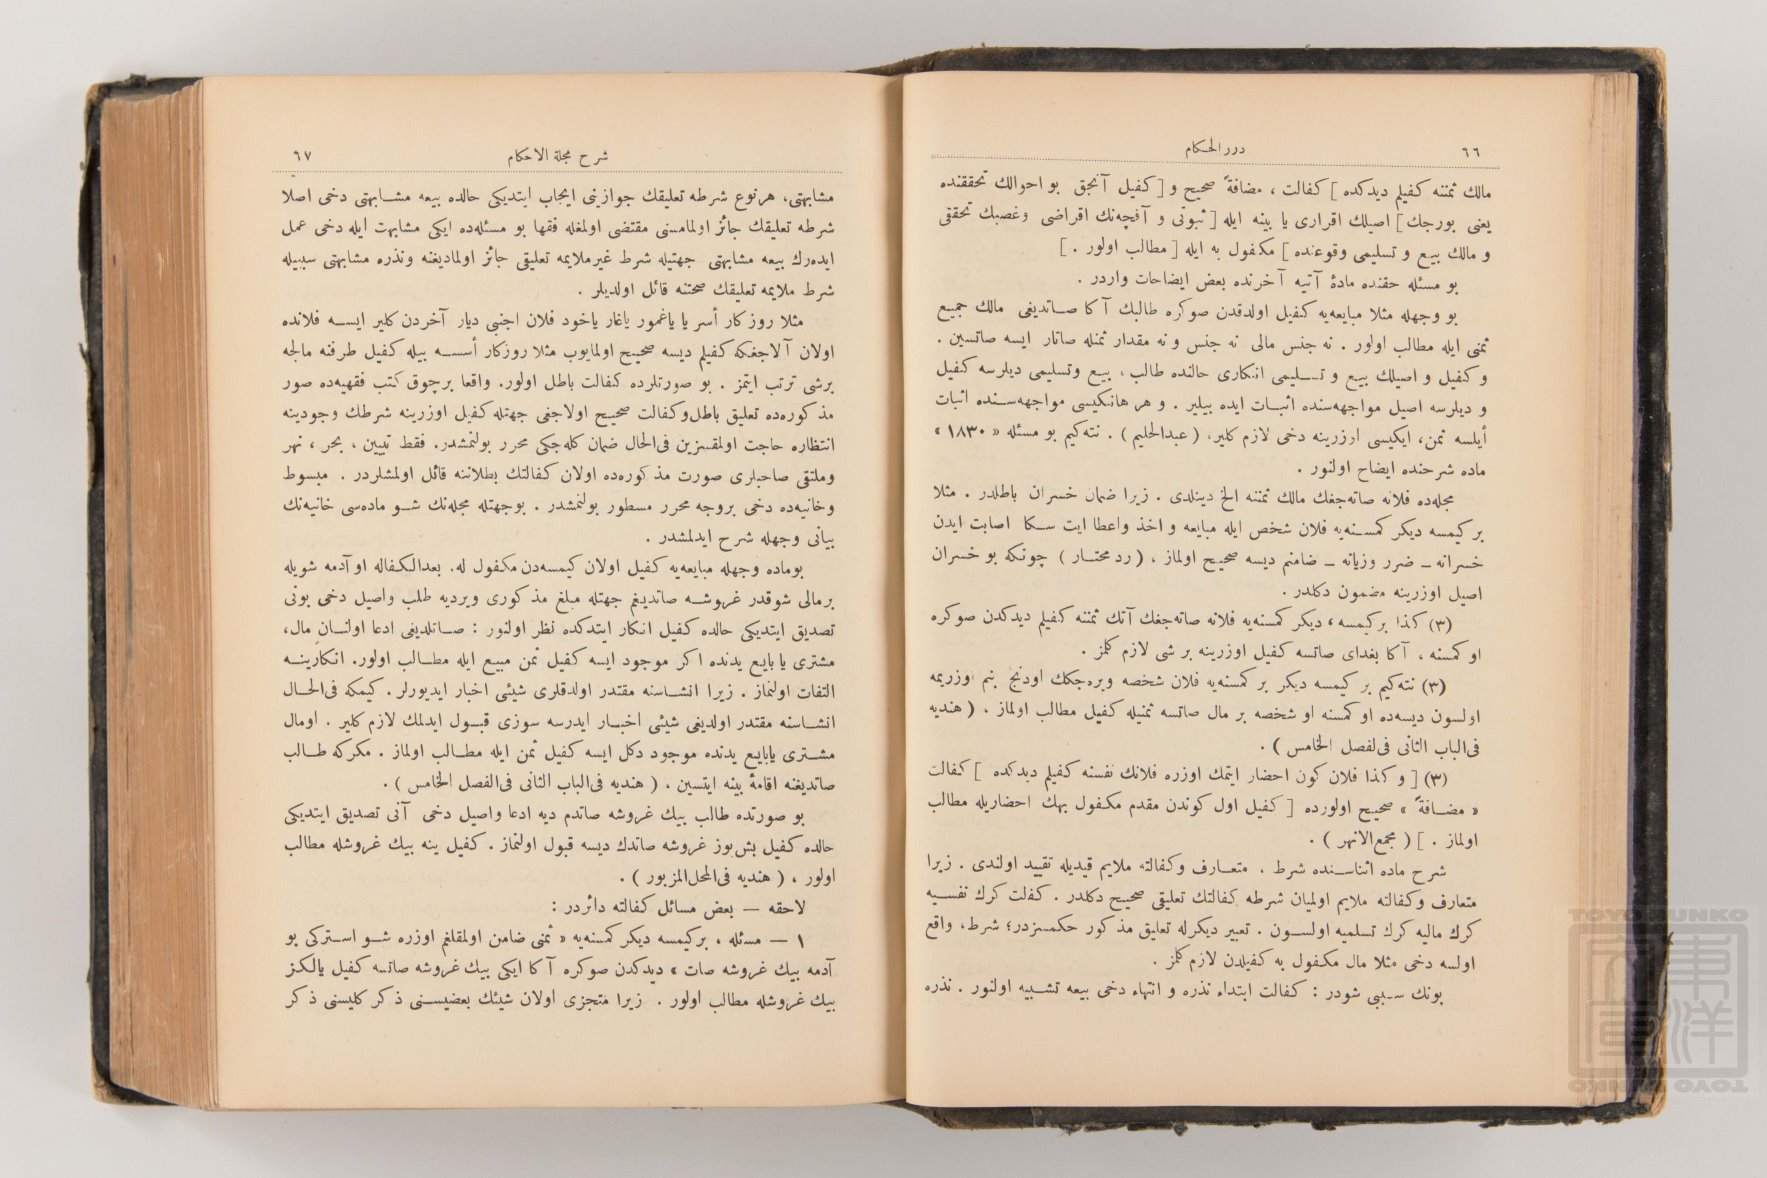 ٦٦
دررالحكام
مالك ثمننه كفيلم ديدكده ] كفالت ، مضافةً صحيح و [ كفيل آنجق بو احوالك تحققنده
يعنى بورجك ] اصيلك اقرارى يا بينه ايله [ ثبوتى و آقچه‌نك اقراضى وغصبك تحققى
و مالك بيع و تسليمى وقوعنده ] مكفول به ايله [ مطالب اولور . ]
بو مسئله حقنده مادهٔ آتيه آخرنده بعض ايضاحات واردر .
بو وجهله مثلا مبايعه‌يه كفيل اولدقدن صوكره طالبك آكا صاتديغى مالك جميع
ثمنى ايله مطالب اولور . نه جنس مالى نه جنس و نه مقدار ثمنله صاتار ايسه صاتسين .
و كفيل و اصيلك بيع و تسليمى انكارى حالنده طالب ، بيع وتسليمى ديلرسه كفيل
و ديلرسه اصيل مواجهه‌سنده اثبات ايده بيلير . و هر هانكيسى مواجهه‌سنده اثبات
أيلسه ثمن، ايكيسى اوزرينه دخى لازم كلير، ( عبدالحليم ) . نته‌كيم بو مسئله « ١٨٣٠ »
ماده شرحنده ايضاح اولنور .
مجله‌ده فلانه صاته‌جغك مالك ثمننه الخ دينلدى . زيرا ضمان خسران باطلدر . مثلا
بر كيمسه ديكر كمسنه‌يه فلان شخص ايله مبايعه و اخذ واعطا ايت سكا اصابت ايدن
خسرانه ـ ضرر وزيانه ـ ضامنم ديسه صحيح اولماز ، ( رد محتار ) چونكه بو خسران
اصيل اوزرينه مضمون دكلدر .
(٣) كذا بر كيمسه ، ديكر كمسنه‌يه فلانه صاته‌جغك آتك ثمننه كفيلم ديدكدن صوكره
او كمسنه ، آكا بغداى صاتسه كفيل اوزرينه بر شى لازم كلمز .
(٣) نته‌كيم بر كيمسه ديكر بر كمسنه‌يه فلان شخصه ويره‌جكك اودنج بنم اوزريمه
اولسون ديسه‌ده او كمسنه او شخصه بر مال صاتسه ثمنيله كفيل مطالب اولماز ، ( هنديه
فى‌الباب الثانى فى‌لفصل الخامس ) .
(٣) [ و كذا فلان كون احضار ايتمك اوزره فلانك نفسنه كفيلم ديدكده ] كفالت
« مضافةً » صحيح اولورده [ كفيل اول كوندن مقدم مكفول بهك احضاريله مطالب
اولماز . ] ( مجمع‌الانهر ) .
شرح ماده اثناسنده شرط ، متعارف وكفالته ملايم قيديله تقييد اولندى . زيرا
متعارف وكفالته ملايم اولميان شرطه كفالتك تعليقى صحيح دكلدر . كفلت كرك نفسيه
كرك ماليه كرك تسلميه اولسون . تعبير ديكرله تعليق مذكور حكمسزدر؛ شرط، واقع
اولسه دخى مثلا مال مكفول به كفيلدن لازم كلمز .
بونك سببى شودر : كفالت ابتداء نذره و انتهاء دخى بيعه تشبيه اولنور . نذره
شرح مجلة الاحكام
٦٧
مشابهتى، هرنوع شرطه تعليقك جوازينى ايجاب ايتديكى حالده بيعه مشابهتى دخى اصلا
شرطه تعليقك جائز اولمامسنى مقتضى اولمغله فقها بو مسئله‌ده ايكى مشابهت ايله دخى عمل
ايده‌رك بيعه مشابهتى جهتيله شرط غيرملايمه تعليقى جائز اولماديغنه ونذره مشابهتى سببيله
شرط ملايمه تعليقك صحتنه قائل اولديلر .
مثلا روزكار أسر يا ياغمور ياغار ياخود فلان اجنبى ديار آخردن كلير ايسه فلانده
اولان آلاجغكه كفيلم ديسه صحيح اولمايوب مثلا روزكار أسسه بيله كفيل طرفنه مالجه
برشى ترتب ايتمز . بو صورتلرده كفالت باطل اولور. واقعا برچوق كتب فقهيه‌ده صور
مذكوره‌ده تعليق باطل‌وكفالت صحيح اولاجغى جهتله كفيل اوزرينه شرطك وجودينه
انتظاره حاجت اولمقسزين فى‌الحال ضمان كله‌جكى محرر بولنمشدر. فقط تبيين ، بحر ، نهر
وملتقى صاحبلرى صورت مذكوره‌ده اولان كفالتك بطلاننه قائل اولمشلردر . مبسوط
وخانيه‌ده دخى بروجه محرر مسطور بولنمشدر . بوجهتله مجله‌نك شو ماده‌سى خانيه‌نك
بيانى وجهله شرح ايدلمشدر .
بوماده وجهله مبايعه‌يه كفيل اولان كيمسه‌دن مكفول له، بعدالكفاله او آدمه شويله
برمالى شوقدر غروشه صاتديغم جهتله مبلغ مذكورى ويرديه طلب واصيل دخى بونى
تصديق ايتديكى حالده كفيل انكار ايتدكده نظر اولنور : صاتلديغى ادعا اولنان مال،
مشترى يا بايع يدنده اكر موجود ايسه كفيل ثمن مبيع ايله مطالب اولور. انكارينه
التفات اولنماز . زيرا انشاسنه مقتدر اولدقلرى شيئى اخبار ايديورلر . كيمكه فى‌الحال
انشاسنه مقتدر اولديغى شيئى اخبار ايدرسه سوزى قبول ايدلمك لازم كلير . اومال
مشترى يابايع يدنده موجود دكل ايسه كفيل ثمن ايله مطالب اولماز . مكركه طالب
صاتديغنه اقامهٔ بينه ايتسين ، ( هنديه فى‌الباب الثانى فى‌الفصل الخامس ) .
بو صورتده طالب بيك غروشه صاتدم ديه ادعا واصيل دخى آنى تصديق ايتديكى
حالده كفيل بش‌يوز غروشه صاتدك ديسه قبول اولنماز . كفيل ينه بيك غروشله مطالب
اولور ، ( هنديه فى‌المحل‌المزبور ) .
لاحقه — بعض مسائل كفالته دائردر :
١ — مسئله ، بركيمسه ديكر كمسنه‌يه « ثمنى ضامن اولمقلغم اوزره شو استركى بو
آدمه بيك غروشه صات » ديدكدن صوكره آكا ايكى بيك غروشه صاتسه كفيل يالكز
بيك غروشله مطالب اولور . زيرا متجزى اولان شيئك بعضيسنى ذكر كليسنى ذكر
TOYO BUNKO
東洋文庫